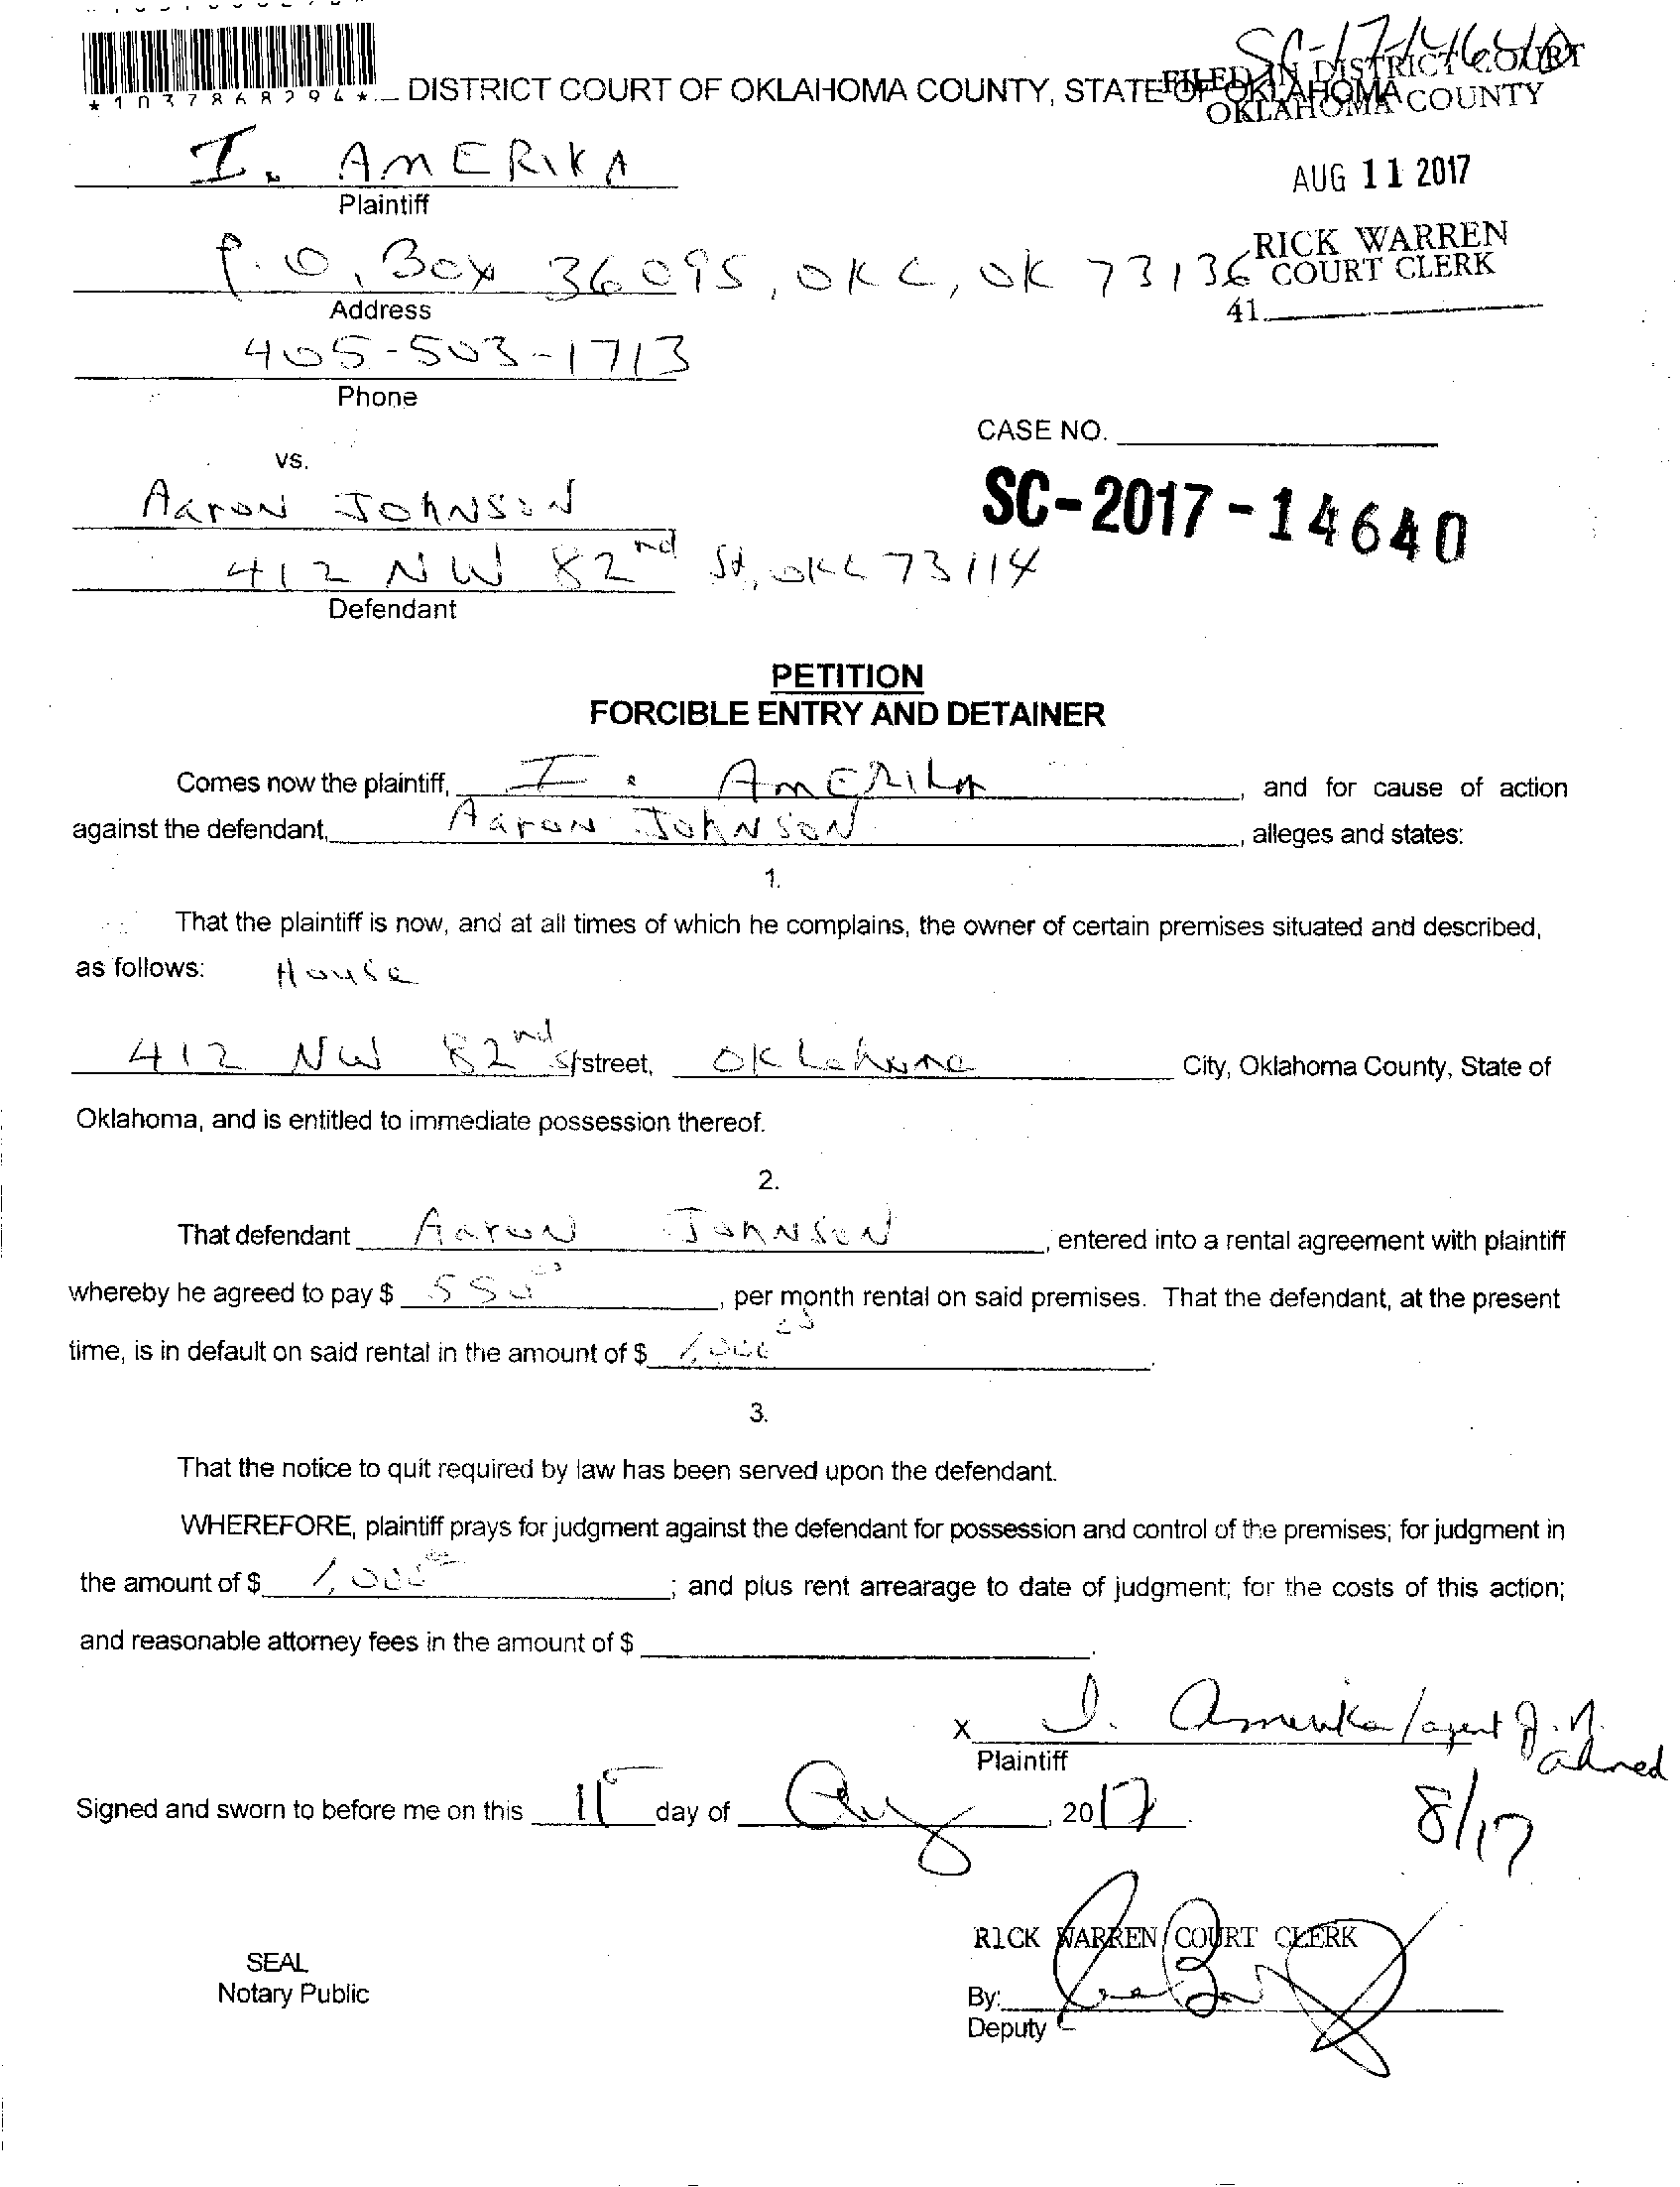 *1037868294*
SC-17-14640
DISTRICT COURT OF OKLAHOMA COUNTY, STATE OF OKLAHOMA
FILED IN DISTRICT COURT
OKLAHOMA COUNTY
I. AMERIKA
Plaintiff
AUG 11 2017
P.O. Box 36095, OKC, OK 73136
Address
RICK WARREN
COURT CLERK
41
405-503-1713
Phone
CASE NO.
vs.
Aaron Johnson
SC-2017-14640
412 NW 82nd St, OKC 73114
Defendant
PETITION
FORCIBLE ENTRY AND DETAINER
Comes now the plaintiff, I. AmERikA, and for cause of action
against the defendant, Aaron Johnson, alleges and states:
1.
That the plaintiff is now, and at all times of which he complains, the owner of certain premises situated and described,
as follows: House
412 NW 82nd St street, Oklahoma City, Oklahoma County, State of
Oklahoma, and is entitled to immediate possession thereof.
2.
That defendant Aaron Johnson, entered into a rental agreement with plaintiff
whereby he agreed to pay $ 550, per month rental on said premises. That the defendant, at the present
time, is in default on said rental in the amount of $ 1,000.
3.
That the notice to quit required by law has been served upon the defendant.
WHEREFORE, plaintiff prays for judgment against the defendant for possession and control of the premises; for judgment in
the amount of $ 1,000; and plus rent arrearage to date of judgment; for the costs of this action;
and reasonable attorney fees in the amount of $
x I. Amerika/agent J.N. Ahmed
Plaintiff
8/17
Signed and sworn to before me on this 11 day of Aug, 2017.
RICK WARREN COURT CLERK
SEAL
Notary Public
By:
Deputy